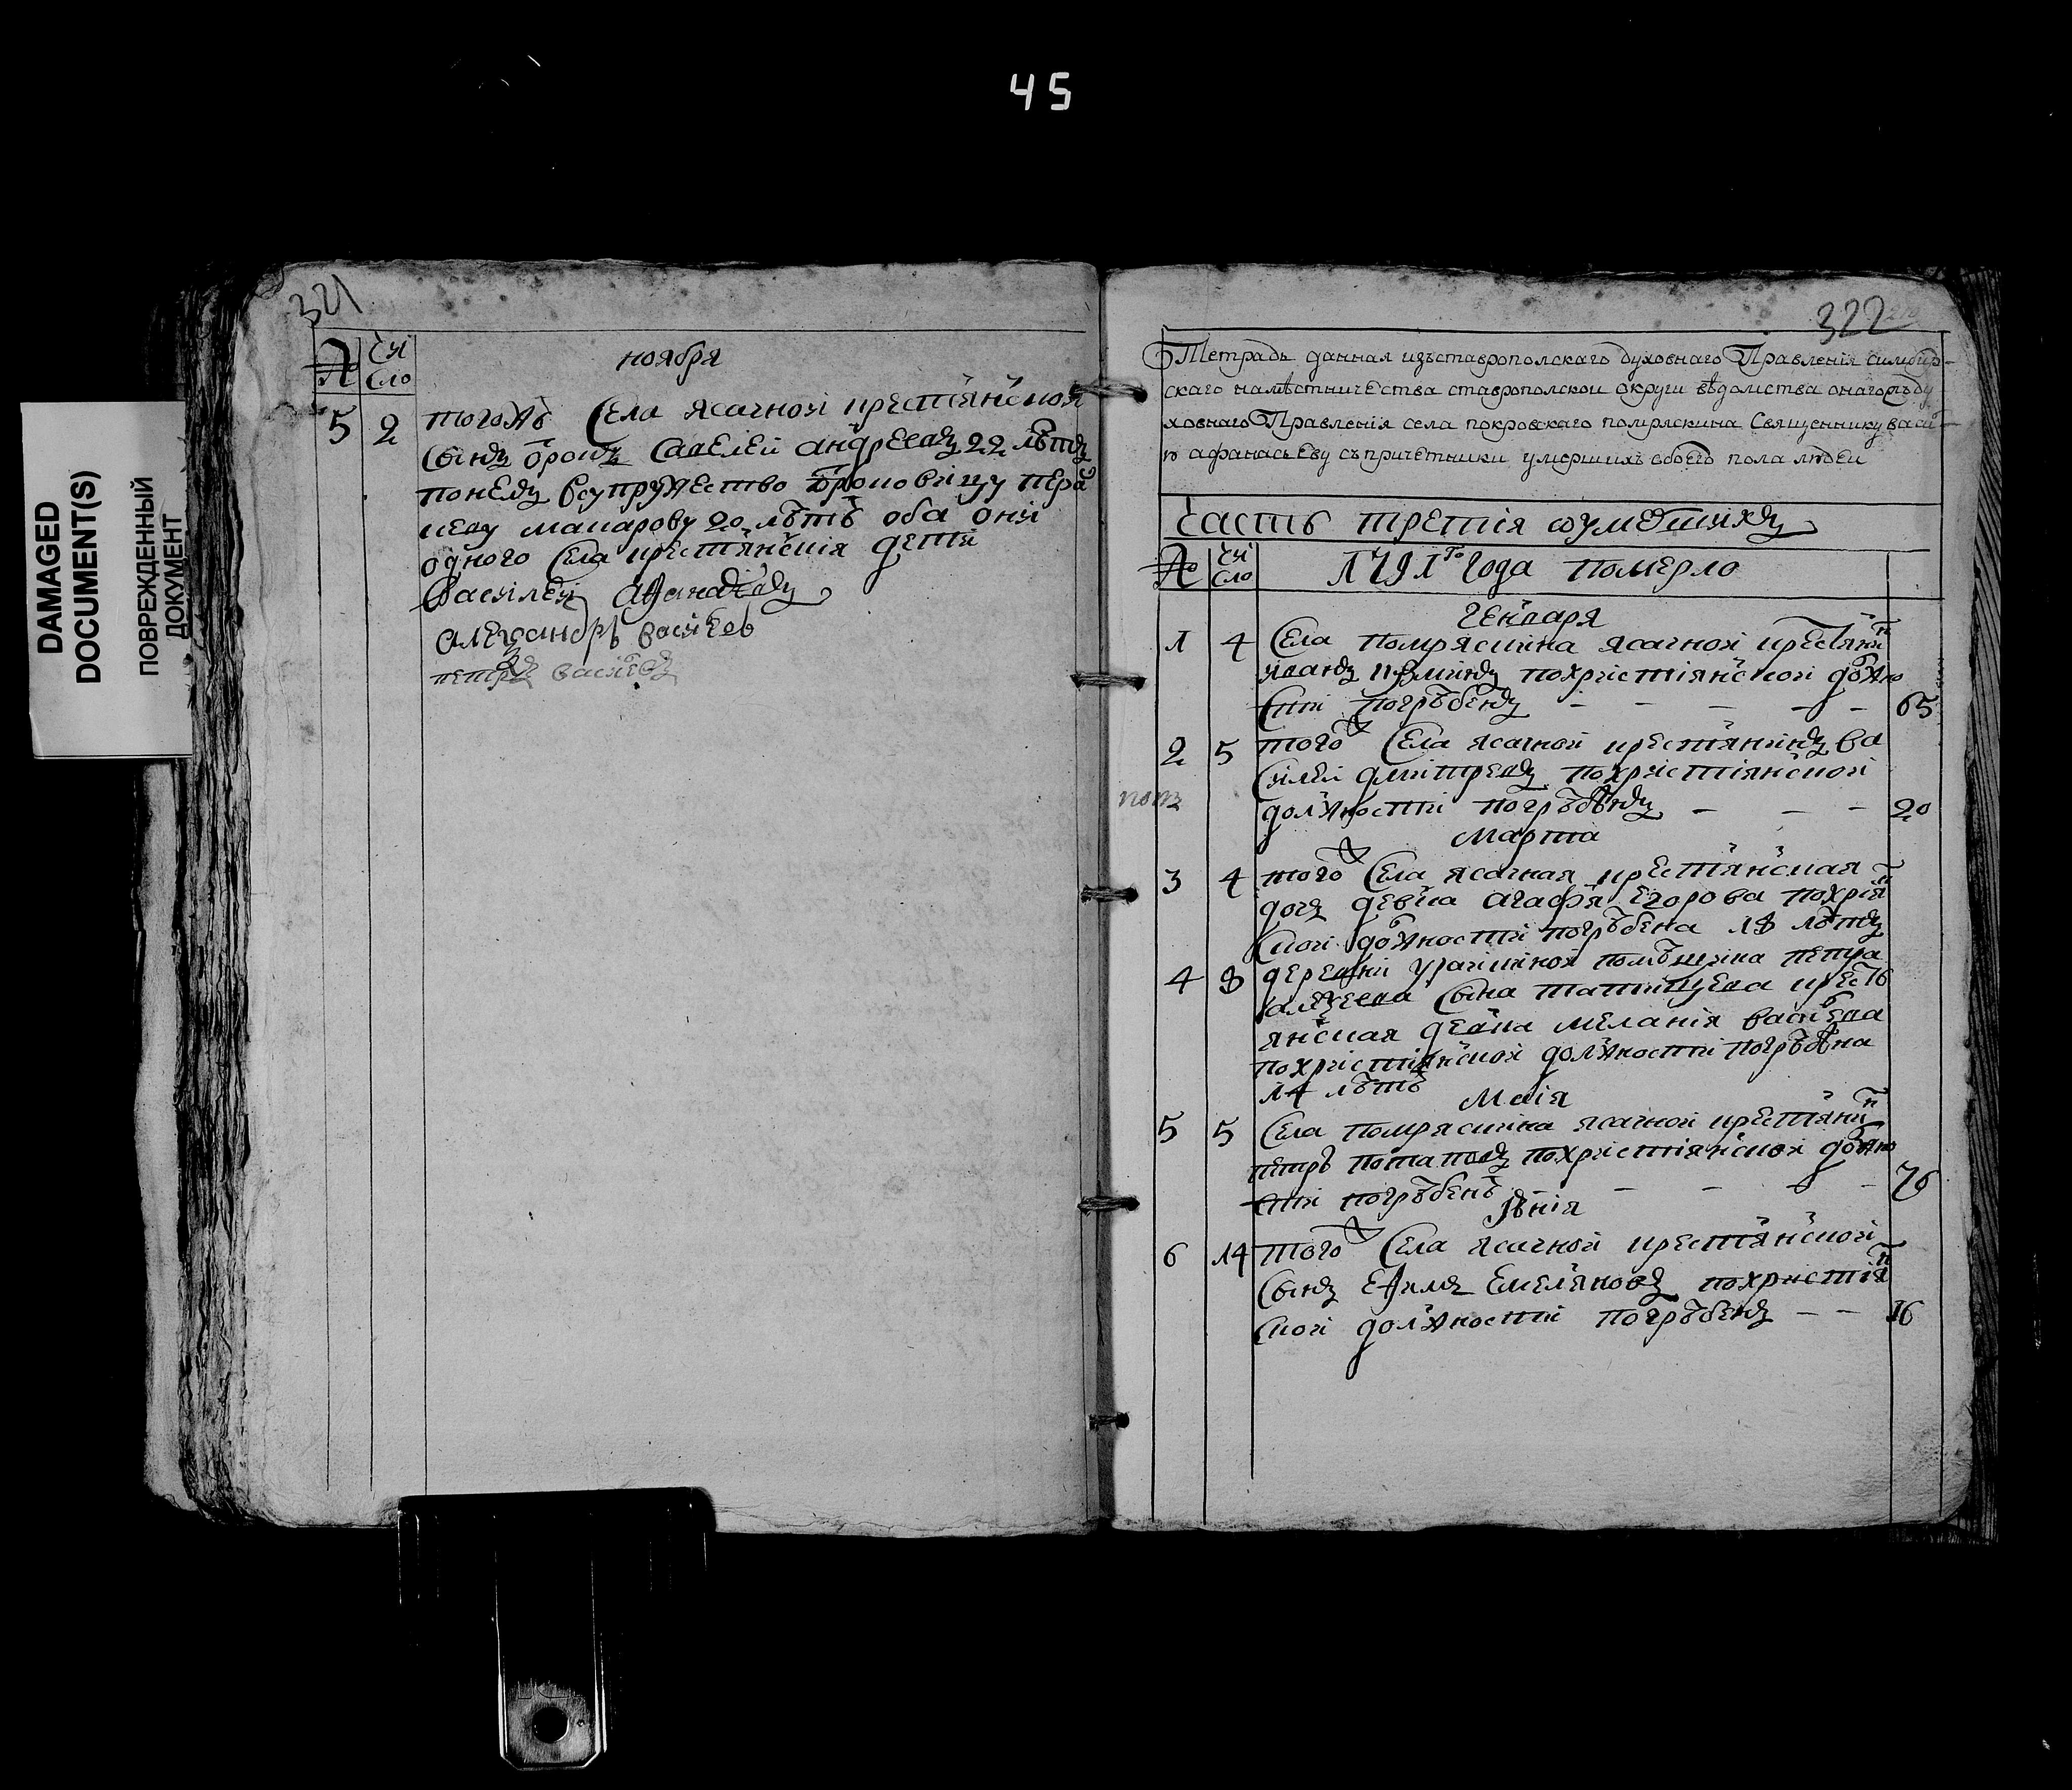 45
DAMAGED
DOCUMENT(S)
ПОВРЕЖДЕННЫЙ
ДОКУМЕНТ
321
№ чи
сло
ноября
5 2 тогожъ села ясачной крестьянской
сынъ отрокъ Савелей андреевъ 22 лѣтъ
понелъ всупружество
макарову 20 лѣтъ оба они
одного села крестьянския дети
Василей Афанасьевъ
александръ васильев
петръ васильевъ
322
Тетрадь данная изъставрополскаго духовнаго Правленія симбир-
скаго намѣстничества ставрополскои округи вѣдомства онагожъ ду
ховнаго Правленія села покровскаго помряскина Священнику васи-
ю афанасьеву съпричетники умершихъ обоего пола людеи
Часть третія оумершихъ
№ чи
сло
1791го года померло
генваря
1 4 Села помряскина ясачной крестьянин
иванъ кузминъ похристіянской должно
сти погрѣбенъ — — — — — 65
2 5 тогож села ясачной крестьянинъ ва
силей дмитревъ похристіянской
должности погрѣбенъ — — — 20
марта
3 4 тогож села ясачная крестьянская
дочь девка агафья егорова похристіян
ской должности погрѣбена 18 лѣтъ
4 8 деревни помѣщика петра
алексеева сына татищева кресть
янская девка меланія васильева
похристіянской должности погрѣбена
14 лѣтъ
Маія
5 5 Села помряскина ясачной крестьянин
петръ потаповъ похристіянской должно
сти погрѣбенъ — — — — 70
Іюнія
6 14 тогож села ясачной крестьянской
сынъ ефимъ емельяновъ похристіян
ской должности погрѣбенъ — — 16